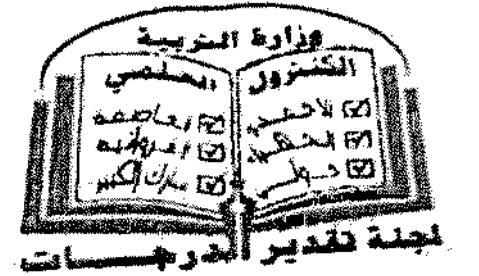 وزارة التربية
الكنترول العلمي
الأحمدي
حولي
العاصمه
الفروانيه
مبارك الكبير
لجنة تقدير الدرجات